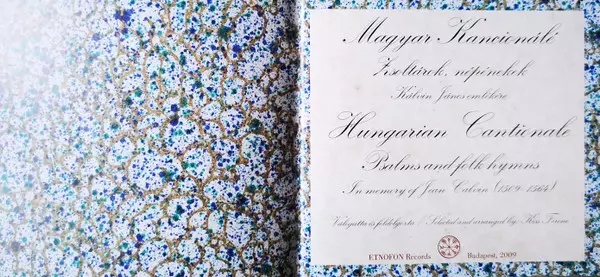 Magyar Kancionálé
Zsoltárok, népénekek
Kálvin János emlékére
Hungarian Cantionale
Psalms and folk hymns
In memory of Jean Calvin (1509-1564)
Válogatta és feldolgozta / Selected and arranged by: Kiss Ferenc
ETNOFON Records Budapest, 2009